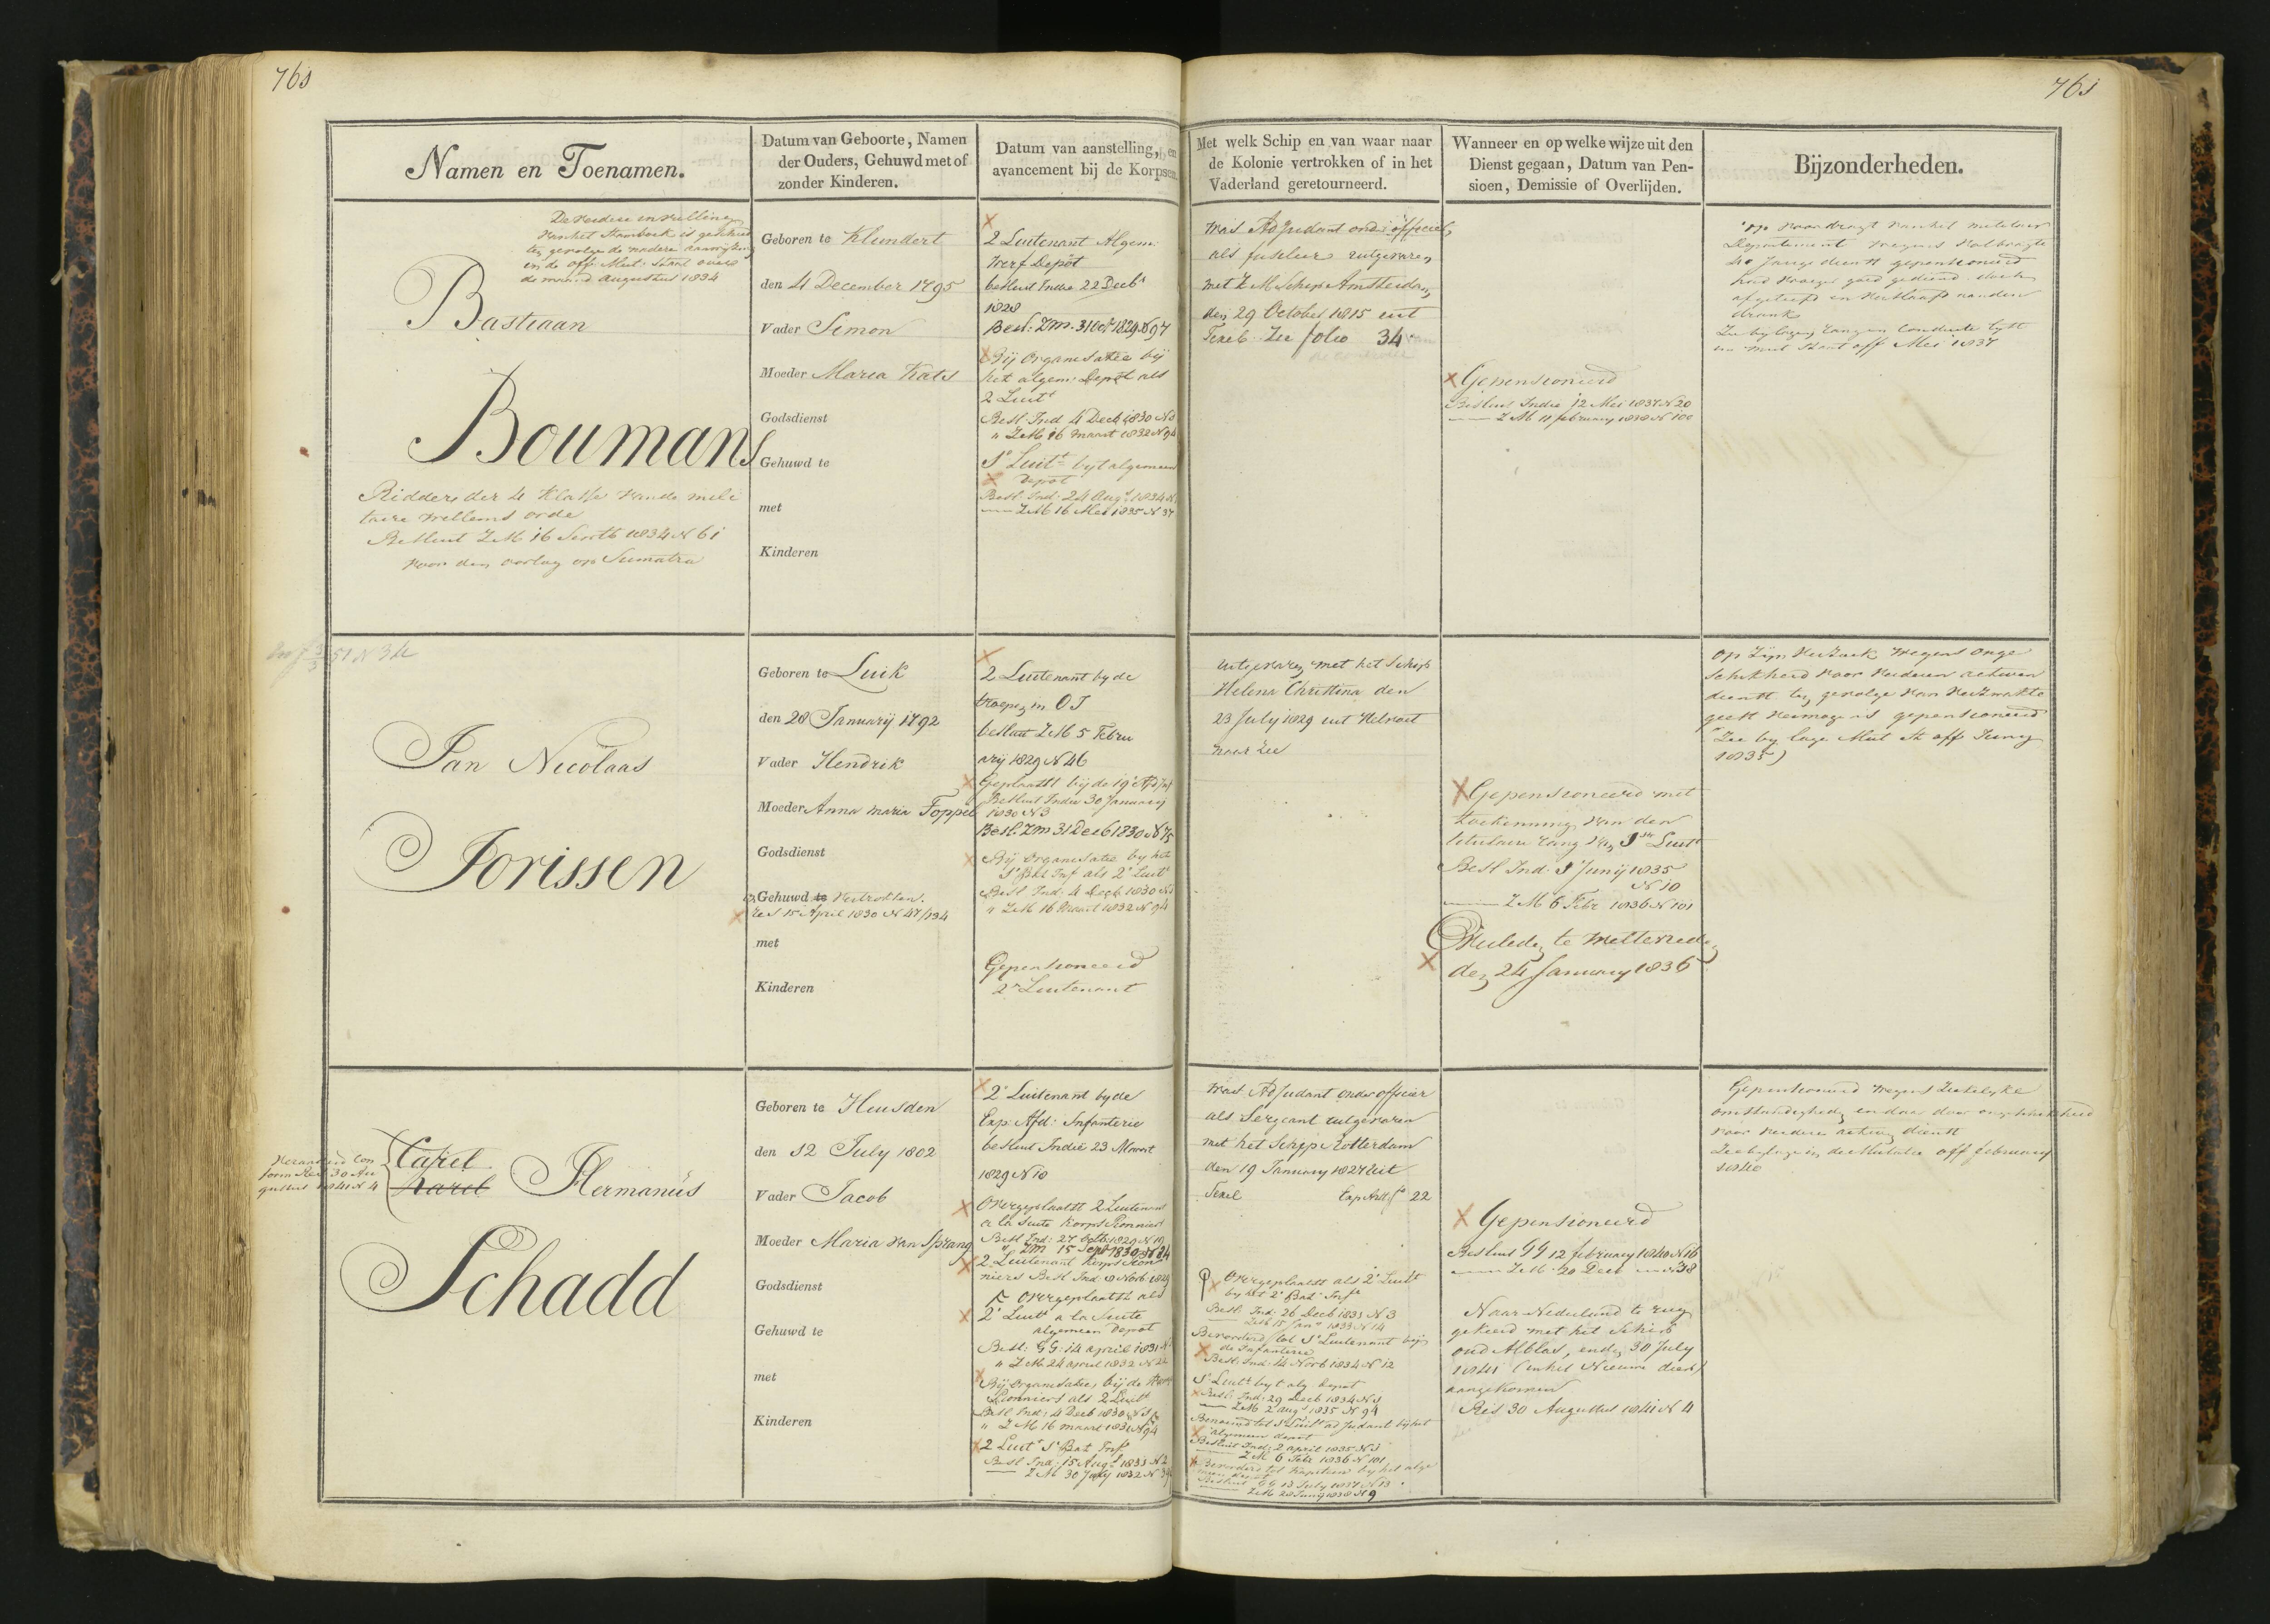 761
761
Namen en Toenamen.
Datum van Geboorte, Namen
der Ouders, Gehuwd met of
zonder Kinderen.
Datum van aanstelling, en
avancement bij de Korpsen.
Met welk Schip en van waar naar
de Kolonie vertrokken of in het
Vaderland geretourneerd.
Wanneer en op welke wijze uit den
Dienst gegaan, Datum van Pen-
sioen, Demissie of Overlijden.
Bijzonderheden.
De verdere invulling
van het Stamboek is geschied
ten gevolge de nadere aanwijzing
in de off: Mut: Staat over
de maand Augustus 1834
Bastiaan
Boumans
Ridder der 4 Klasse van de mili
taire Willems orde
Besluit ZM 16 1834 N 61
voor den oorlog op Sumatra
Geboren te Klundert
den 4 December 1795
Vader Simon
Moeder Maria Kats
Godsdienst
Gehuwd te
met
Kinderen
2 Luitenant Algem:
Werf Depôt
besluit Indie 22 Decb
1828
Besl: ZM. 31 Oct 1829 N 97
Bij Organisatie bij
het algem: Depôt als
2 Luitt
Besl. Ind 4 Decb 1830 N 1
" ZM 16 Maart 1832 N 94
1e Luitt byt algemeen
Depôt
Besl. Ind: 24 Augt 1834 N
— ZM 16 Mei 1835 N 37
was Adjudant onderofficier,
als fuselier uitgevaren
met ZM Schip Amsterdam,
den 29 October 1815 uit
Texel. Zie folio 34
Gepensioneerd
Besluit Indie 12 Mei 1837 N 20
— ZM 11 february 1838 N 100
op voordragt van het militair
Departement wegens volbragte
40 jarige dienst gepensioneerd
had vroeger goed gediend doch
afgeleefd en verslaafd aan den
drank
Zie bylagen, rang en Conduite lyst
en mut Staat off Mei 1837
Jan Nicolaas
Jorissen
Geboren te Luik
den 28 Januarij 1792
Vader Hendrik
Moeder Anna Maria Foppel
Godsdienst
Gehuwd te vertrokken.
Res 15 April 1830 N 47/134
met
Kinderen
2 Luitenant by de
troepen in OI
besluit ZM 5 Febru
arij 1829 N 46
Geplaatst bij de 19e Afd Inf
Besluit Indie 30 January
1830 N 3
Besl. ZM 31 Decb 1830 N 75
Bij Organisatie by het
1e Bat Inf als 2e Luitt
Besl Ind. 4 Decb 1830 N 1
" ZM 16 Maart 1832 N 94
Gepensioneerd
2e Luitenant
uitgevaren met het Schip
Helena Christina den
23 July 1829 uit Helvoet
naar Zee
Gepensioneerd met
toekenning van den
titulaire rang van 1ste Luitt
Besl Ind. 1 Junij 1835
N 10
— ZM 6 Febr 1836 N 101
Overleden te Weltevreden
den 24 January 1836
Op Zijn verzoek wegens onge
schiktheid voor verderen activen
dienst ten gevolge van verzwakte
geest vermogens gepensioneerd
(Zie by lage Mut St off Juny
1835)
Veranderd Con
form Res 30 Au
gustus 1841 N 4
Carel
Karel
Hermanus
Schadd
Geboren te Heusden
den 12 July 1802
Vader Jacob
Moeder Maria van Sprang
Godsdienst
Gehuwd te
met
Kinderen
2e Luitenant by de
Exp: Afd: Infanterie
besluit Indie 23 Maart
1829 N 10
Overgeplaatst 2 Luitenant
a la Suite Korps Pionniers
Besl Ind: 27 Octb 1829 N 19
" ZM 15 Sept 1830 N 84
2 Luitenant Korps Pion
niers Besl Ind 8 Novb 1829
Overgeplaatst als
2e Luitt a la Suite
algemeen Depot
Besl: GG: 14 april 1831 N
" ZM 24 april 1832 N 22
Bij Organisatie, bij de
Pionniers als 2 Luitt
Besl Ind: 4 Decb 1830 N 1
" ZM 16 maart 1832 N 94
2 Luitt 1e Bat Inf
Besl Ind: 15 Augt 1831 N 2
— ZM 30 July 1832 N 39
was Adjudant onderofficier
als Sergeant uitgevaren
met het Schip Rotterdam
den 19 January 1827 uit
Texel Exp Afd fo 22
Overgeplaatst als 2e Luitt
by het 2e Bat: Infie
Besl. Ind: 26 Decb 1831 N 3
— ZM 15 Jan 1833 N 14
Bevorderd tot 1e Luitenant bij
de Infanterie
Besl. Ind: 14 Novb 1834 N 12
1e Luitt byt alg Depot
Besl. Ind: 29 Decb 1834 N 1
— ZM 2 Augt 1835 N 94
Benoemd tot 1e Luitt adjudant bij het
algemeen depot
Besluit Ind: 2 april 1835 N 1
ZM 6 Febr 1836 N 101
Bevorderd tot Kapitein by het alge
meen depot
Besluit GG 13 July 1837 N 13
— ZM 28 Juny 1838 N 9
Gepensioneerd
Besluit GG 12 february 1840 N 16
— ZM 20 Decb — N 38
Naar Nederland te rug
gekeerd met het Schip
oud Alblas, en den 30 July
1841 (in het Nieuwe diep)
aangekomen
Res 30 Augustus 1841 N 4
Gepensioneerd wegens ziekelyke
omstandigheden en daar door ongeschiktheid
voor verdere activen dienst
Zie bylage in de Mutatie off february
1840